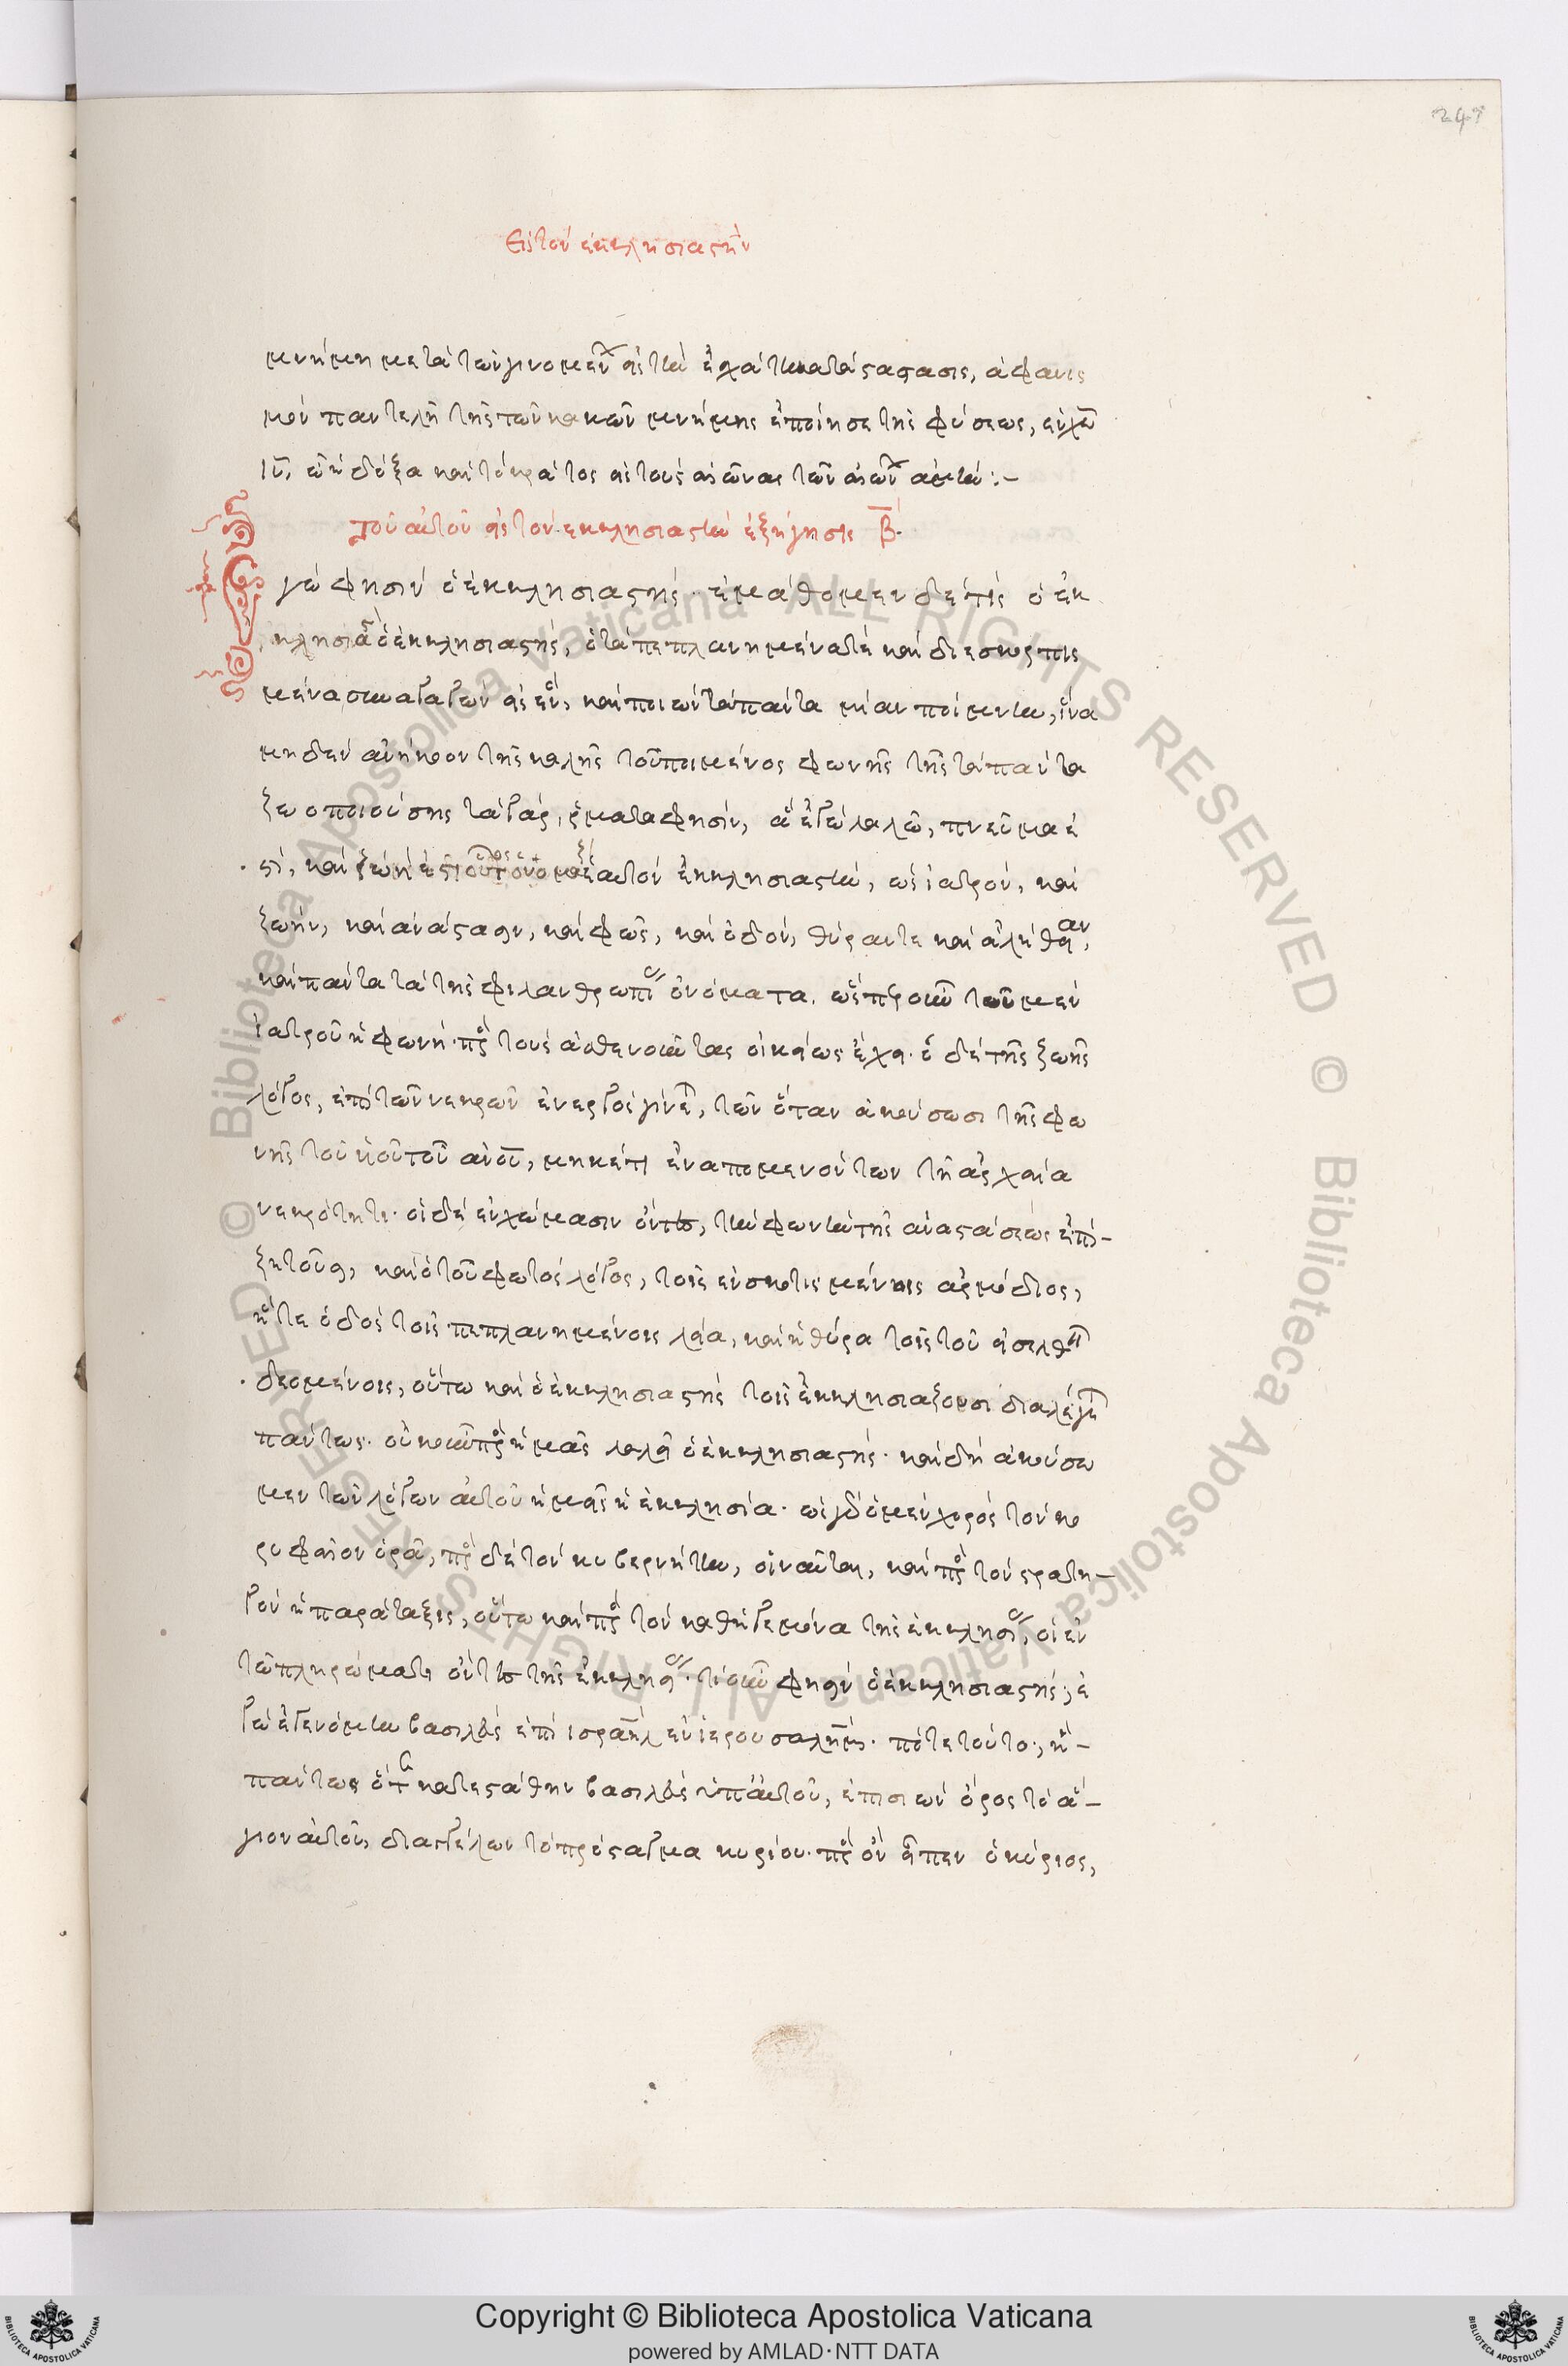 247
Εἰς τὸν ἐκκλησιαστὴν
μνήμη μετὰ τῶν γινομένων εἰς τὴν ἐσχάτην κατάστασις, ἀφανισ
μὸν παντελῆ τῆς τῶν κακῶν μνήμης ἐποίησε τῆς φύσεως, ἐν χω
ιυ, ὧ ἡ δόξα καὶ τὸ κράτος εἰς τοὺς αἰῶνας τῶν αἰώνων ἀμήν:-
τοῦ αὐτοῦ εἰς τὸν ἐκκλησιαστὴν ἐξήγησις β.
Ἐγὼ φησὶν ὁ ἐκκλησιαστής· ἐμάθομεν δὲ τίς ὁ ἐκ
κλησιαστὴς ὁ ἐκκλησιαστής, ὁ τὰ πεπλανημένα τὲ καὶ διεσκορπισ
μένα συναγαγὼν εἰς ἓν, καὶ ποιῶν τὰ πάντα μίαν ποίμνην, ἵνα
μηδὲν ἀνήκοον τῆς καλῆς τοῦ ποιμένος φωνῆς τῆς τὰ πάντα
ζωοποιούσης τὰ γὰρ ῥήματα φησὶν, ἃ ἐγὼ λαλῶ, πνεῦμα ἐ
στὶ, καὶ ζωή ἐστι οὗτος ὀνομάζει ἑαυτὸν ἐκκλησιαστὴν, ὡς ἰατρὸν, καὶ
ζωὴν, καὶ ἀνάστασιν, καὶ φῶς, καὶ ὁδὸν, θύραν τε καὶ ἀλήθειαν,
καὶ πάντα τὰ τῆς φιλανθρωπίας ὀνόματα. ὥσπερ οὖν τοῦ μὲν
ἰατροῦ ἡ φωνὴ πρὸς τοὺς ἀσθενοῦντας οἰκείως ἔχει· ὁ δὲ τῆς ζωῆς
λόγος, ἐπὶ τῶν νεκρῶν ἐνεργὸς γίνεται, τῶν ὅταν ἀκούσωσι τῆς φω
νῆς τοῦ υἱοῦ τοῦ ἀνου, μηκέτι ἐναπομενόντων τῇ ἀρχαία
νεκρότητι· οἱ δὲ ἐν χώμασιν ὄντες, τὴν φωνὴν τῆς ἀναστάσεως ἐπι-
ζητοῦσι, καὶ ὁ τοῦ φωτὸς λόγος, τοῖς ἐνσκοτισμένοις ἁρμόδιος,
ἥ τε ὁδὸς τοῖς πεπλανημένοις λεία, καὶ ἡ θύρα τοῖς τοῦ εἰσελθεῖν
δεομένοις, οὕτω καὶ ὁ ἐκκλησιαστὴς τοῖς ἐκκλησιάζουσι διαλέγεται
πάντως· οὐκοῦν πρὸς ἡμᾶς λαλεῖ ὁ ἐκκλησιαστής· καὶ δὴ ἀκούσω
μεν τῶν λόγων αὐτοῦ ἡμεῖς ἡ ἐκκλησία· ὡς γὰρ ὁ μὲν χορὸς τὸν κο
ρυφαῖον ὁρᾶ, πρὸς δὲ τὸν κυβερνήτην, οἱ ναῦται, καὶ πρὸς τὸν στρατη-
γὸν ἡ παράταξις, οὕτω καὶ πρὸς τὸν καθηγεμόνα τῆς ἐκκλησίας, οἱ ἐν
τῶ πληρώματι ὄντες τῆς ἐκκλησίας· τί οὖν φησὶν ὁ ἐκκλησιαστής; ἐ
γὼ ἐγενόμην βασιλεὺς ἐπὶ ισραηλ ἐν ἱερουσαλήμ· πότε τοῦτο; ἢ-
πάντως ὅτε κατεστάθην βασιλεὺς ὑπ' αὐτοῦ, ἐπὶ σιὼν ὄρος τὸ ἅ-
γιον αὐτοῦ, διαγγέλων τὸ πρόσταγμα κυρίου· πρὸς ὃν εἶπεν ὁ κύριος,
Copyright © Biblioteca Apostolica Vaticana
powered by AMLAD·NTT DATA